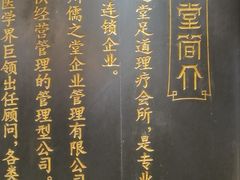 堂简介
堂足道理疗会所，是专业
连锁企业。
州儒之堂企业管理有限公司
供经营管理的管理型公司。
医学界巨领出任顾问，各类